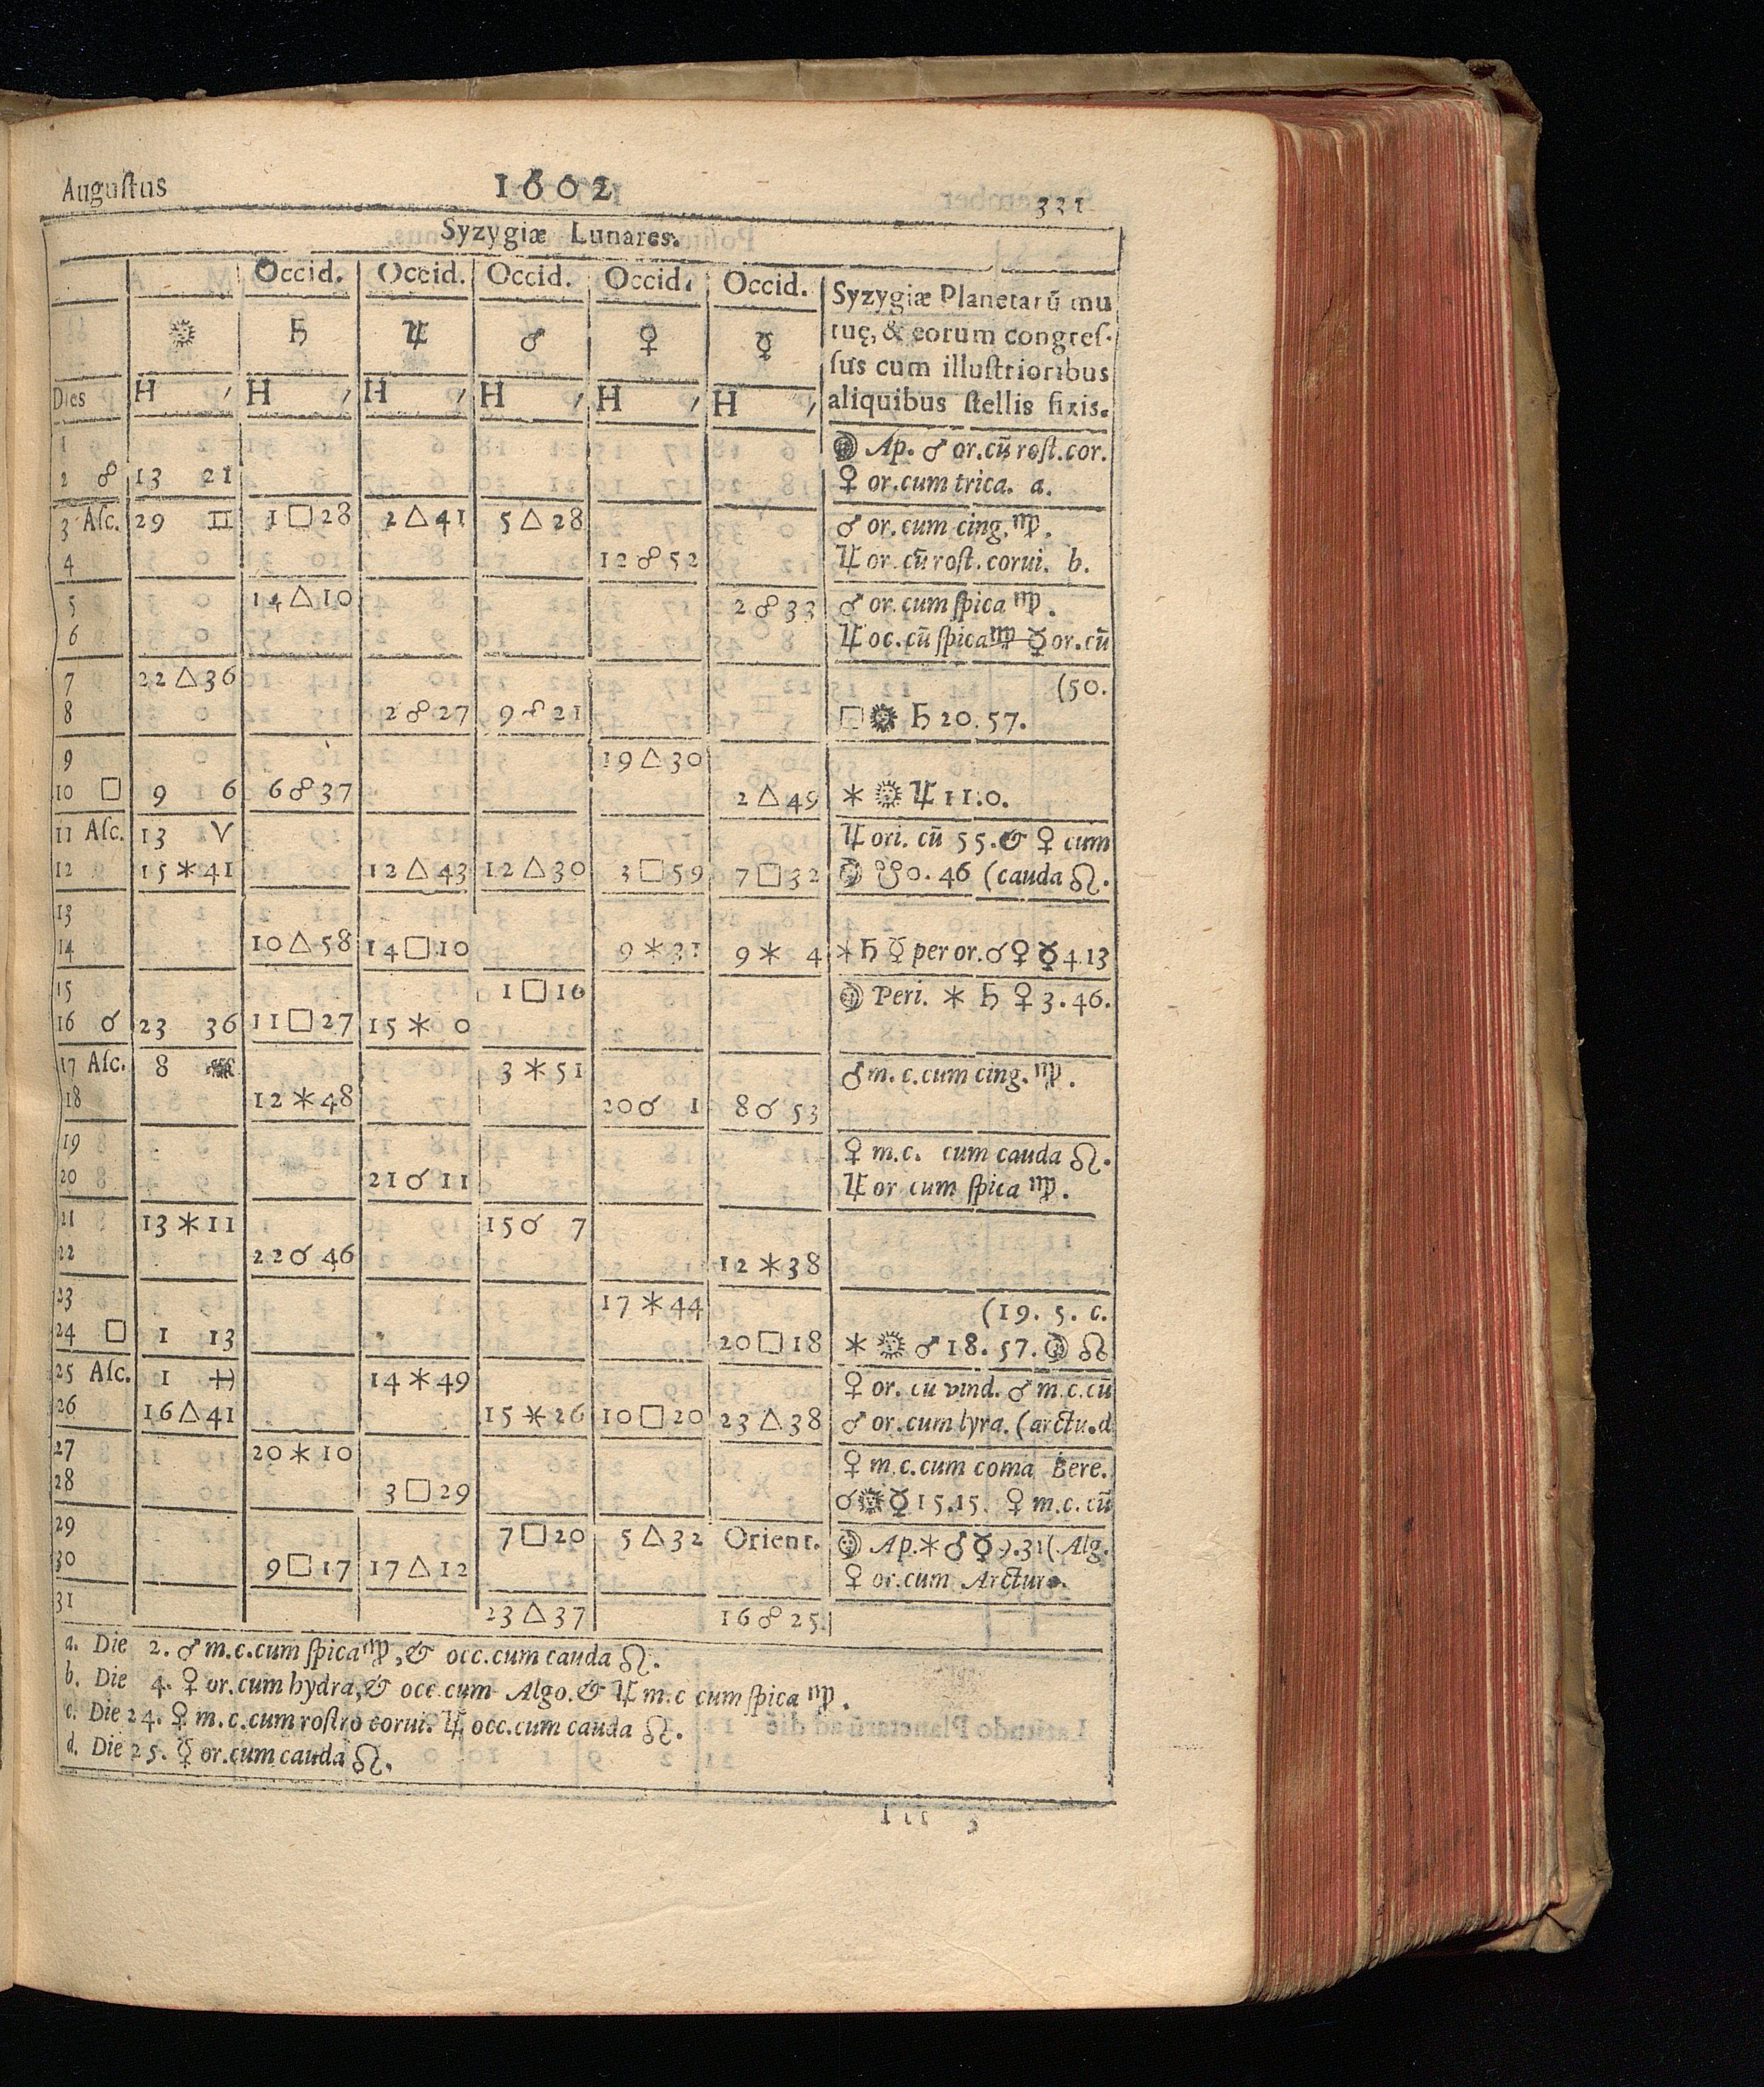 Auguſtus 1602 321
Syzygiæ Lunares.
Occid. Occid. Occid. Occid. Occid. Syzygiæ Planetarū mu
☉ ♄ ♃ ♂ ♀ ☿ tuę, & eorum congreſ-
ſus cum illuſtrioribus
Dies H ′ H ′ H ′ H ′ H ′ H ′ aliquibus ſtellis fixis.
1 ☽ Ap. ♂ or.cū roſt.cor.
2 ☍ 13 21 ♀ or.cum trica. a.
3 Aſc. 29 ♊ 1 □ 28 2 △ 41 5 △ 28 ♂ or.cum cing. ♍.
4 12 ☍ 52 ♃ or.cū roſt.corui. b.
5 14 △ 10 2 ☍ 33 ♂ or.cum ſpica ♍.
6 ♃ oc.cū ſpica ♍ ☿ or.cū
7 22 △ 36 (50.
8 2 ☍ 27 9 ☍ 21 □ ☉ ♄ 20.57.
9 19 △ 30
10 □ 9 6 6 ☍ 37 2 △ 49 ⚹ ☉ ♃ 11.0.
11 Aſc. 13 ♈ ♃ ori. cū 55. & ♀ cum
12 15 ⚹ 41 12 △ 43 12 △ 30 3 □ 59 7 □ 32 ☽ ☋ 0.46 (cauda ♌.
13
14 10 △ 58 14 □ 10 9 ⚹ 31 9 ⚹ 4 ⚹ ♄ ☿ per or. ☌ ♀ ☿ 4.13
15 1 □ 16 ☽ Peri. ⚹ ♄ ♀ 3.46.
16 ☌ 23 36 11 □ 27 15 ⚹ 0
17 Aſc. 8 3 ⚹ 51 ♂ m.c.cum cing. ♍.
18 12 ⚹ 48 20 ☌ 1 8 ☌ 53
19 ♀ m.c. cum cauda ♌.
20 21 ☌ 11 ♃ or cum ſpica ♍.
21 13 ⚹ 11 15 ☌ 7
22 22 ☌ 46 12 ⚹ 38
23 17 ⚹ 44 (19. 5. c.
24 □ 1 13 20 □ 18 ⚹ ☉ ♂ 18.57. ☽ ☊
25 Aſc. 1 ♓ 14 ⚹ 49 ♀ or. cū vind. ♂ m.c.cū
26 16 △ 41 15 ⚹ 26 10 □ 20 23 △ 38 ♂ or.cum lyra. (arctu.d
27 20 ⚹ 10 ♀ m.c.cum coma Bere.
28 3 □ 29 ☌ ☉ ☿ 15.15. ♀ m.c.cū
29 7 □ 20 5 △ 32 Orient. ☽ Ap. ⚹ ♂ ☿ .31(Alg.
30 9 □ 17 17 △ 12 ♀ or.cum Arcturo.
31 23 △ 37 16 ☍ 25.
a. Die 2. ♂ m.c.cum ſpica ♍, & occ.cum cauda ♌.
b. Die 4. ♀ or.cum hydra, & occ.cum Algo. & ♃ m.c cum ſpica ♍.
c. Die 24. ♀ m.c.cum roſtro corui. ♃ occ.cum cauda ♌.
d. Die 25. ☿ or.cum cauda ♌.